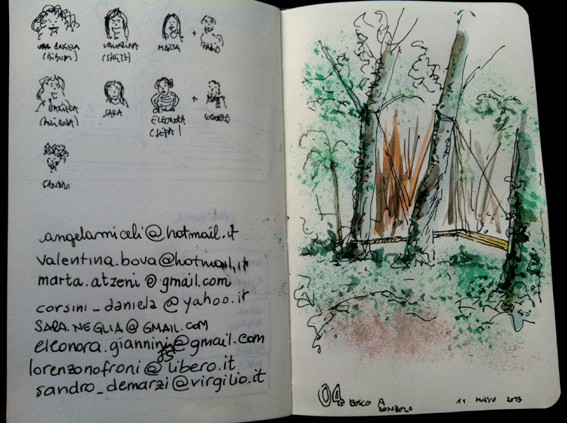 VALENTINA
MARTA
SARA
ELEONORA
SANDRO
angelamiceli@hotmail.it
valentina.bova@hotmail.it
marta.atzeni@gmail.com
corsini_daniela@yahoo.it
SARA.NEGLIA@GMAIL.COM
eleonora.giannini@gmail.com
lorenzonofroni@libero.it
sandro_demarzi@virgilio.it
04 BOSCO A
11 MAYO 2013